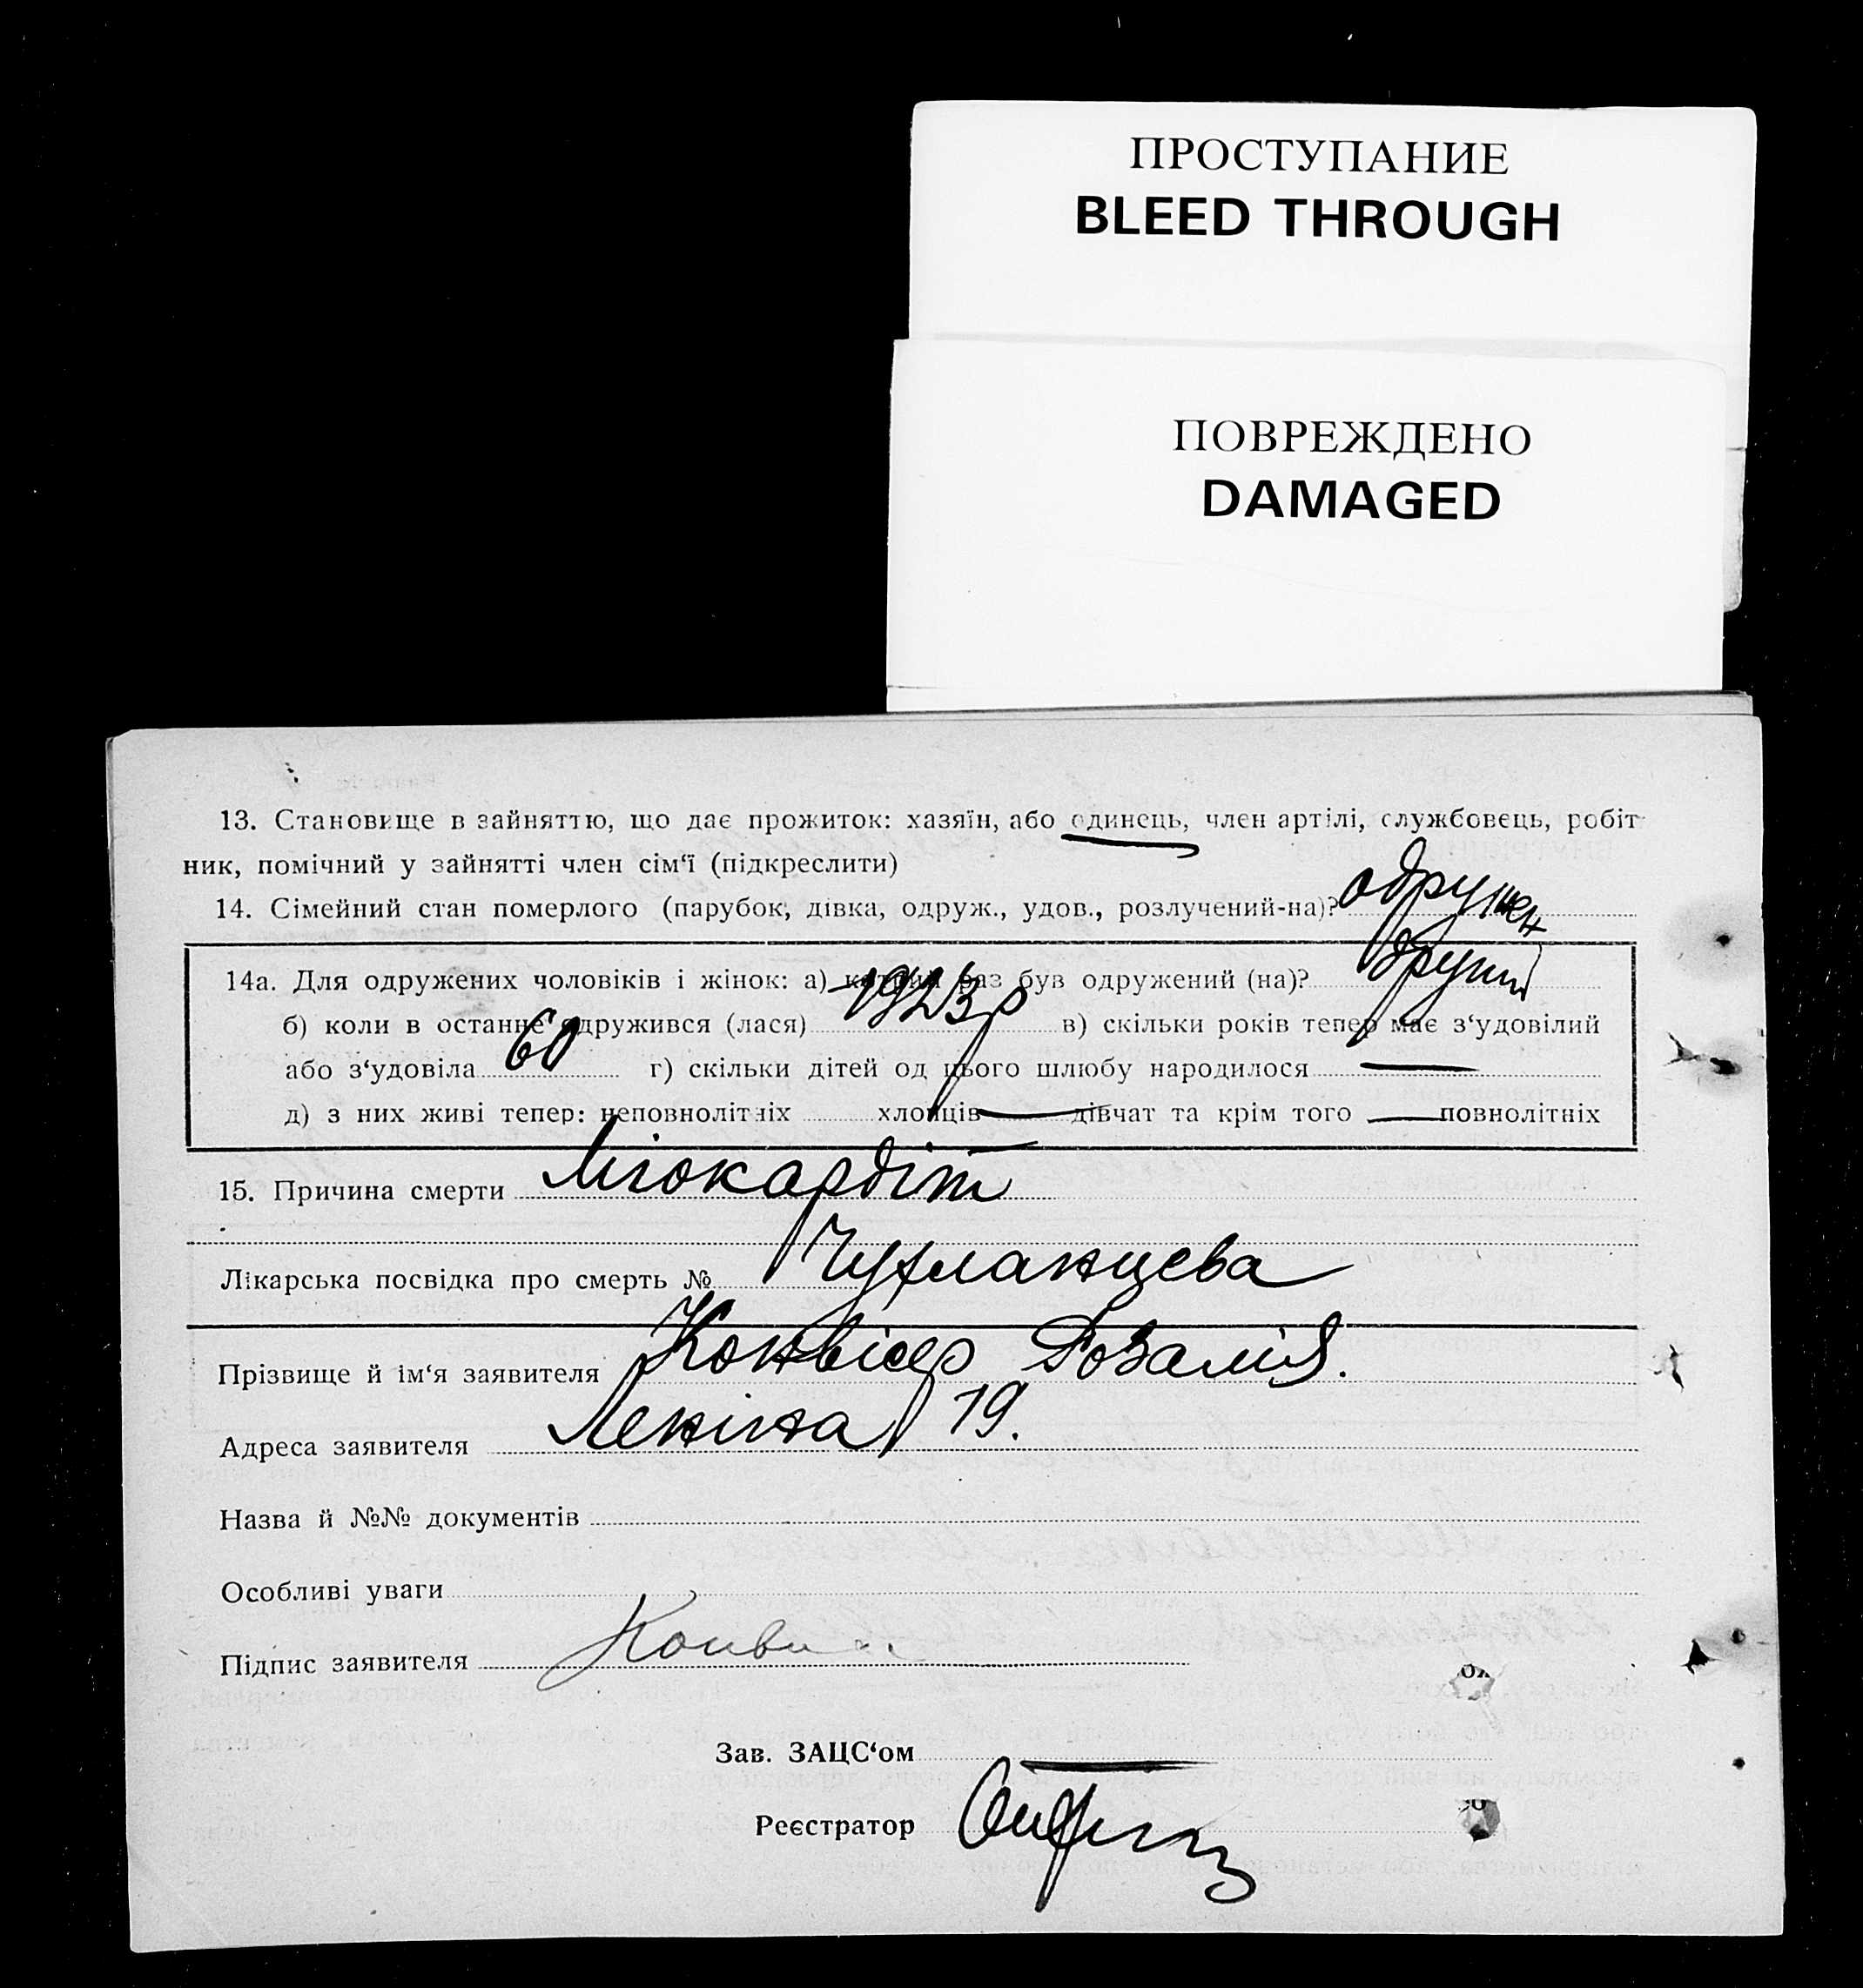 ПРОСТУПАНИЕ
BLEED THROUGH
ПОВРЕЖДЕНО
DAMAGED
13. Становище в зайняттю, що дає прожиток: хазяїн, або одинець, член артілі, службовець, робіт-
ник, помічний у зайнятті член сім‘ї (підкреслити)
14. Сімейний стан померлого (парубок, дівка, одруж., удов., розлучений-на)? одружен
14а. Для одружених чоловіків і жінок: а) котрий раз був одружений (на)? другий
б) коли в останнє одружився (лася) 1923 р в) скільки років тепер має з‘удовілий
або з‘удовіла 60 г) скільки дітей од цього шлюбу народилося —
д) з них живі тепер: неповнолітніх хлопців — дівчат та крім того — повнолітніх
15. Причина смерти Міокардіт
Лікарська посвідка про смерть №
Прізвище й ім‘я заявителя Конвісер Розалія.
Адреса заявителя Леніна 19.
Назва й №№ документів
Особливі уваги
Підпис заявителя Конви
Зав. ЗАЦС‘ом —
Реєстратор